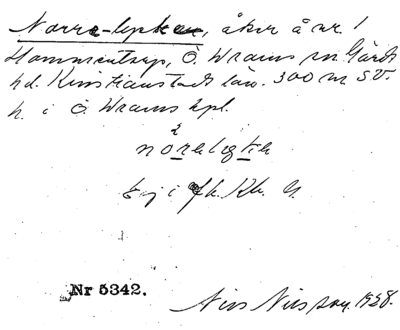 Norre-lycken, åker å nr. 1
Hommentorp, Ö. Wrams sn. Gärds
hd. Kristianstads län. 300 m SV.
k. i Ö. Wrams kpl.
norelyka
Ej i Jb. Kk.
Nr 5342.
Nils Nilsson, 1928.